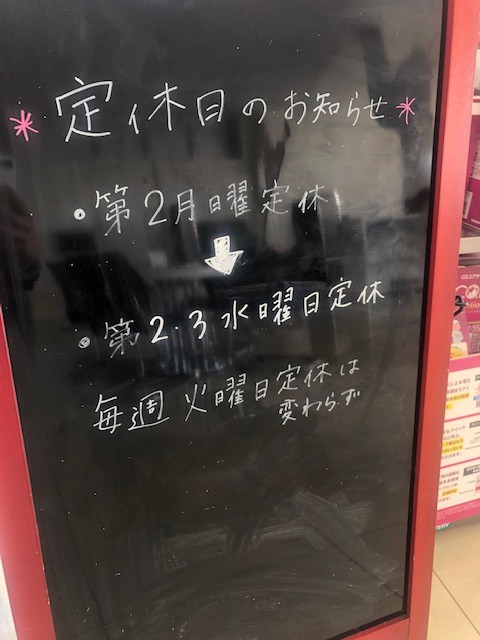 *定休日のお知らせ*
・第2月曜定休
・第2.3水曜日定休
毎週火曜日定休は
変わらず